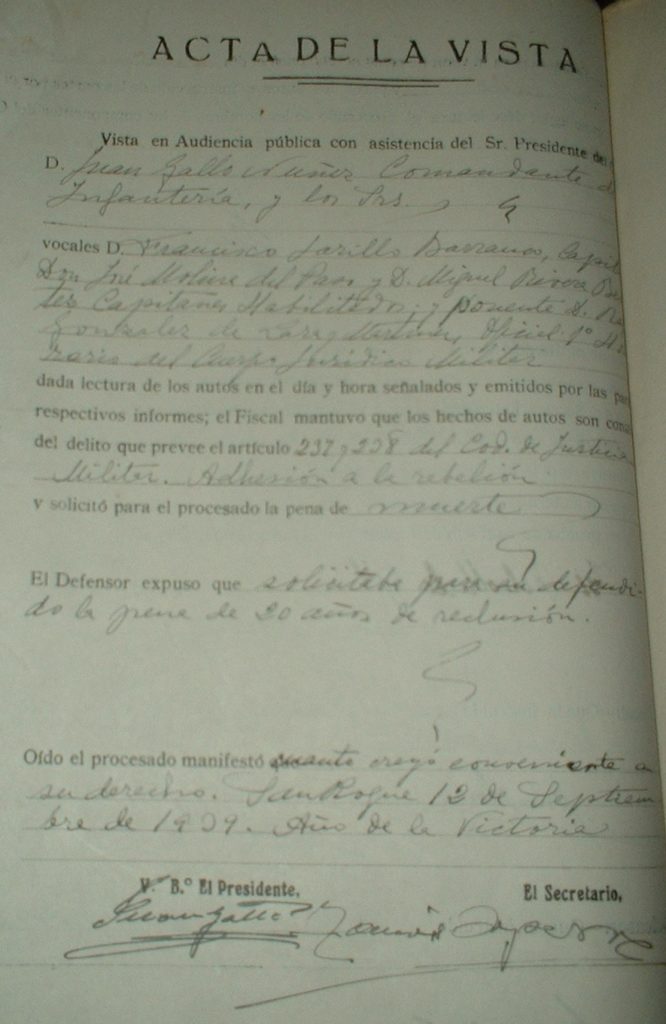 ACTA DE LA VISTA
Vista en Audiencia pública con asistencia del Sr. Presidente del
D. Juan Gallo Nuñez Comandante d
Infantería, y los Srs.
vocales D. Francisco Jarillo Barranco, Capit
Don José Moliné del Paso y D. Miguel Rivera
Capitanes Habilitados, y ponente D.
Gonzalez de Lara y Martinez, Oficial 1º H
del Cuerpo Jurídico Militar
dada lectura de los autos en el día y hora señalados y emitidos por las par
respectivos informes; el Fiscal mantuvo que los hechos de autos son cons
del delito que prevee el artículo 237 y 238 del Cod. de Justicia
Militar. Adhesión a la rebelión
y solicitó para el procesado la pena de muerte
El Defensor expuso que solicitaba para su defendi-
do la pena de 20 años de reclusión.
Oído el procesado manifestó cuanto creyó conveniente a
su derecho. San Roque 12 de Septiem
bre de 1939. Año de la Victoria
V.º B.º El Presidente, El Secretario,
Juan Gallo